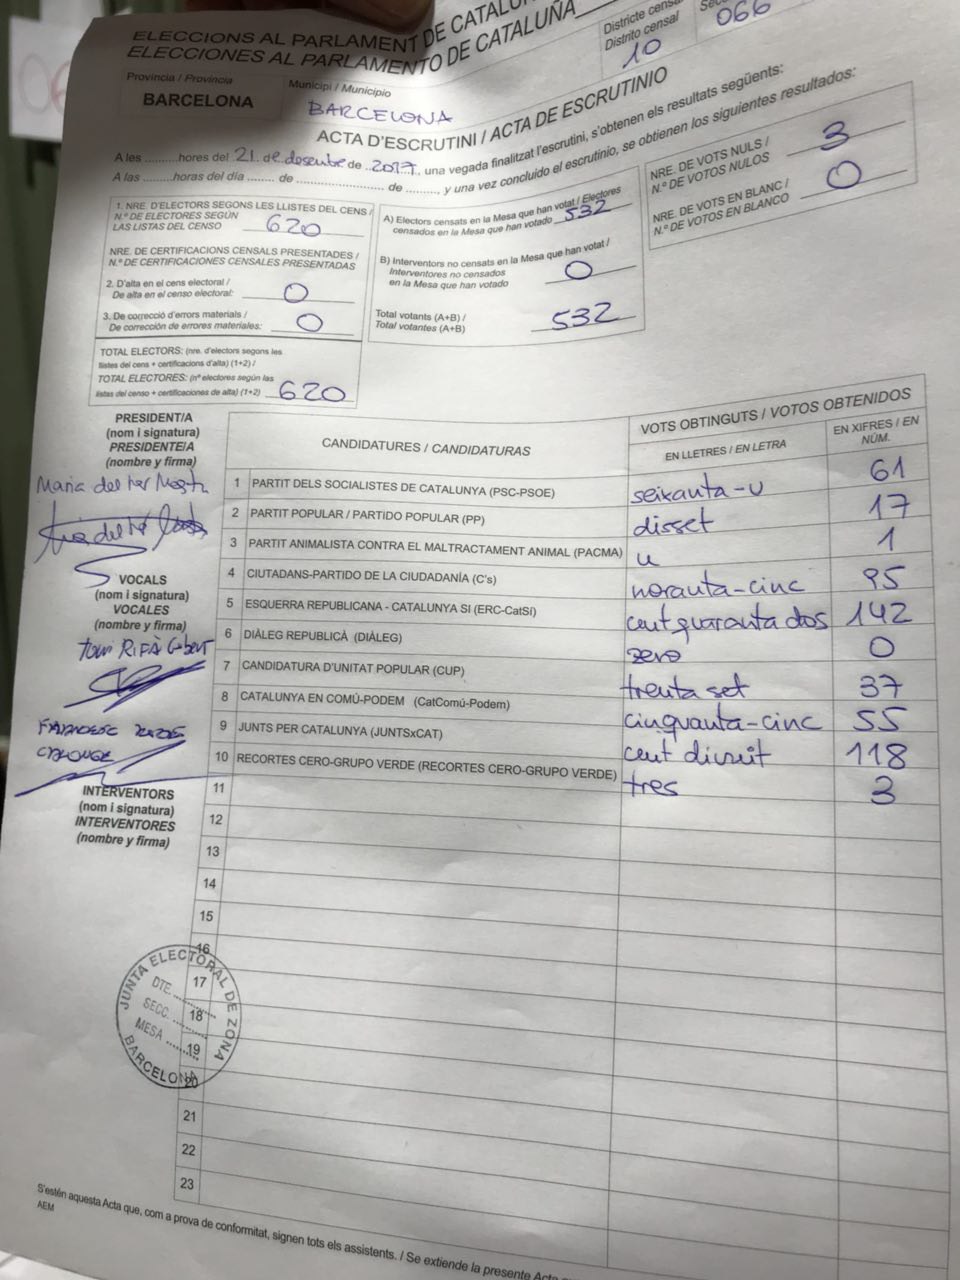 ELECCIONS AL PARLAMENT DE CATALU
ELECCIONES AL PARLAMENTO DE CATALUÑA
Districte censal
Distrito censal
10
066
Província / Provincia
BARCELONA
Municipi / Municipio
BARCELONA
ACTA D'ESCRUTINI / ACTA DE ESCRUTINIO
A les ......... hores del 21 de desembre de 2017, una vegada finalitzat l'escrutini, s'obtenen els resultats següents:
A las ......... horas del día ........ de .......................... de ........., y una vez concluido el escrutinio, se obtienen los siguientes resultados:
1. NRE. D'ELECTORS SEGONS LES LLISTES DEL CENS /
N.º DE ELECTORES SEGÚN
LAS LISTAS DEL CENSO 620
NRE. DE CERTIFICACIONS CENSALS PRESENTADES /
N.º DE CERTIFICACIONES CENSALES PRESENTADAS
2. D'alta en el cens electoral /
De alta en el censo electoral: 0
3. De correcció d'errors materials /
De corrección de errores materiales: 0
TOTAL ELECTORS: (nre. d'electors segons les
llistes del cens + certificacions d'alta) (1+2) /
TOTAL ELECTORES: (nº electores según las
listas del censo + certificaciones de alta) (1+2) 620
A) Electors censats en la Mesa que han votat / Electores
censados en la Mesa que han votado 532
B) Interventors no censats en la Mesa que han votat /
Interventores no censados
en la Mesa que han votado 0
Total votants (A+B) /
Total votantes (A+B) 532
NRE. DE VOTS NULS /
N.º DE VOTOS NULOS 3
NRE. DE VOTS EN BLANC /
N.º DE VOTOS EN BLANCO 0
PRESIDENT/A
(nom i signatura)
PRESIDENTE/A
(nombre y firma)
Maria del Mar
VOCALS
(nom i signatura)
VOCALES
(nombre y firma)
Toni RIFÀ
INTERVENTORS
(nom i signatura)
INTERVENTORES
(nombre y firma)
CANDIDATURES / CANDIDATURAS
VOTS OBTINGUTS / VOTOS OBTENIDOS
EN LLETRES / EN LETRA
EN XIFRES / EN NÚM.
1 PARTIT DELS SOCIALISTES DE CATALUNYA (PSC-PSOE) seixanta-u 61
2 PARTIT POPULAR / PARTIDO POPULAR (PP) disset 17
3 PARTIT ANIMALISTA CONTRA EL MALTRACTAMENT ANIMAL (PACMA) u 1
4 CIUTADANS-PARTIDO DE LA CIUDADANÍA (C's) noranta-cinc 95
5 ESQUERRA REPUBLICANA - CATALUNYA SI (ERC-CatSí) cent quaranta dos 142
6 DIÀLEG REPUBLICÀ (DIÀLEG) zero 0
7 CANDIDATURA D'UNITAT POPULAR (CUP) trenta set 37
8 CATALUNYA EN COMÚ-PODEM (CatComú-Podem) cinquanta-cinc 55
9 JUNTS PER CATALUNYA (JUNTSxCAT) cent divuit 118
10 RECORTES CERO-GRUPO VERDE (RECORTES CERO-GRUPO VERDE) tres 3
11
12
13
14
15
16
17
18
19
20
21
22
23
JUNTA ELECTORAL DE ZONA
DTE. ........
SECC. ........
MESA ........
BARCELONA
S'estén aquesta Acta que, com a prova de conformitat, signen tots els assistents. / Se extiende la presente Acta
AEM